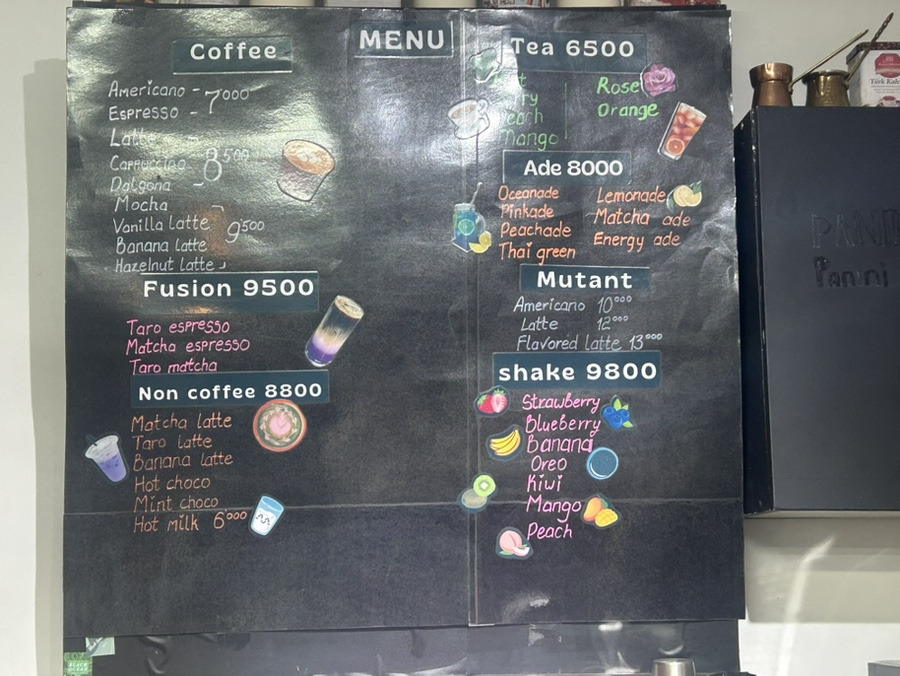 MENU
Coffee
Americano - 7000
Espresso -
Latte
Cappuccino 8500
Dalgona
Mocha
Vanilla latte 9500
Banana latte
Hazelnut latte
Fusion 9500
Taro espresso
Matcha espresso
Taro matcha
Non coffee 8800
Matcha latte
Taro latte
Banana latte
Hot choco
Mint choco
Hot milk 6'000
Tea 6500
Peach
Mango
Rose
Orange
Ade 8000
Oceanade
Pinkade
Peachade
Thai green
Lemonade
Matcha ade
Energy ade
Mutant
Americano 10000
Latte 12000
Flavored latte 13'000
shake 9800
Strawberry
Blueberry
Banana
Oreo
Kiwi
Mango
Peach
Panini